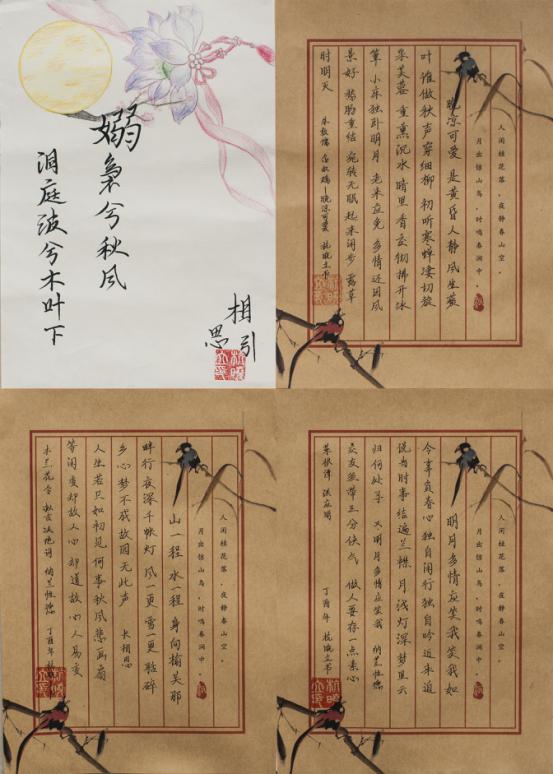 袅兮秋风
洞庭波兮木叶下
相思引
人闲桂花落，夜静春山空。
月出惊山鸟，时鸣春涧中。
晚凉可爱 是黄昏人静 风生蘋
叶 谁做秋声穿细柳 初听寒蝉凄切 旋
采芙蓉 重熏沉水 暗里香交彻 拂开冰
簟 小床独卧明月 老来应免多情 还因风
景好 愁肠重结 宛转无眠起来闲步 露草
时明灭
朱敦儒 念奴娇—晚凉可爱 杭晓立书
人闲桂花落，夜静春山空。
月出惊山鸟，时鸣春涧中。
山一程 水一程 身向榆关那
畔行 夜深千帐灯 风一更 雪一更 聒碎
乡心梦不成 故园无此声 长相思
人生若只如初见 何事秋风悲画扇
等闲变却故人心 却道故心人易变
木兰花令 拟古决绝词 纳兰性德 丁酉年
人闲桂花落，夜静春山空。
月出惊山鸟，时鸣春涧中。
明月多情应笑我 笑我如
今 辜负春心 独自闲行独自吟 近来
说当时事 结遍兰襟 月浅灯深 梦里云
归何处寻 又明月多情应笑我 纳兰性德
交友须带三分侠气 做人要存一点素心
菜根谭 洪应明 丁酉年 杭晓立书